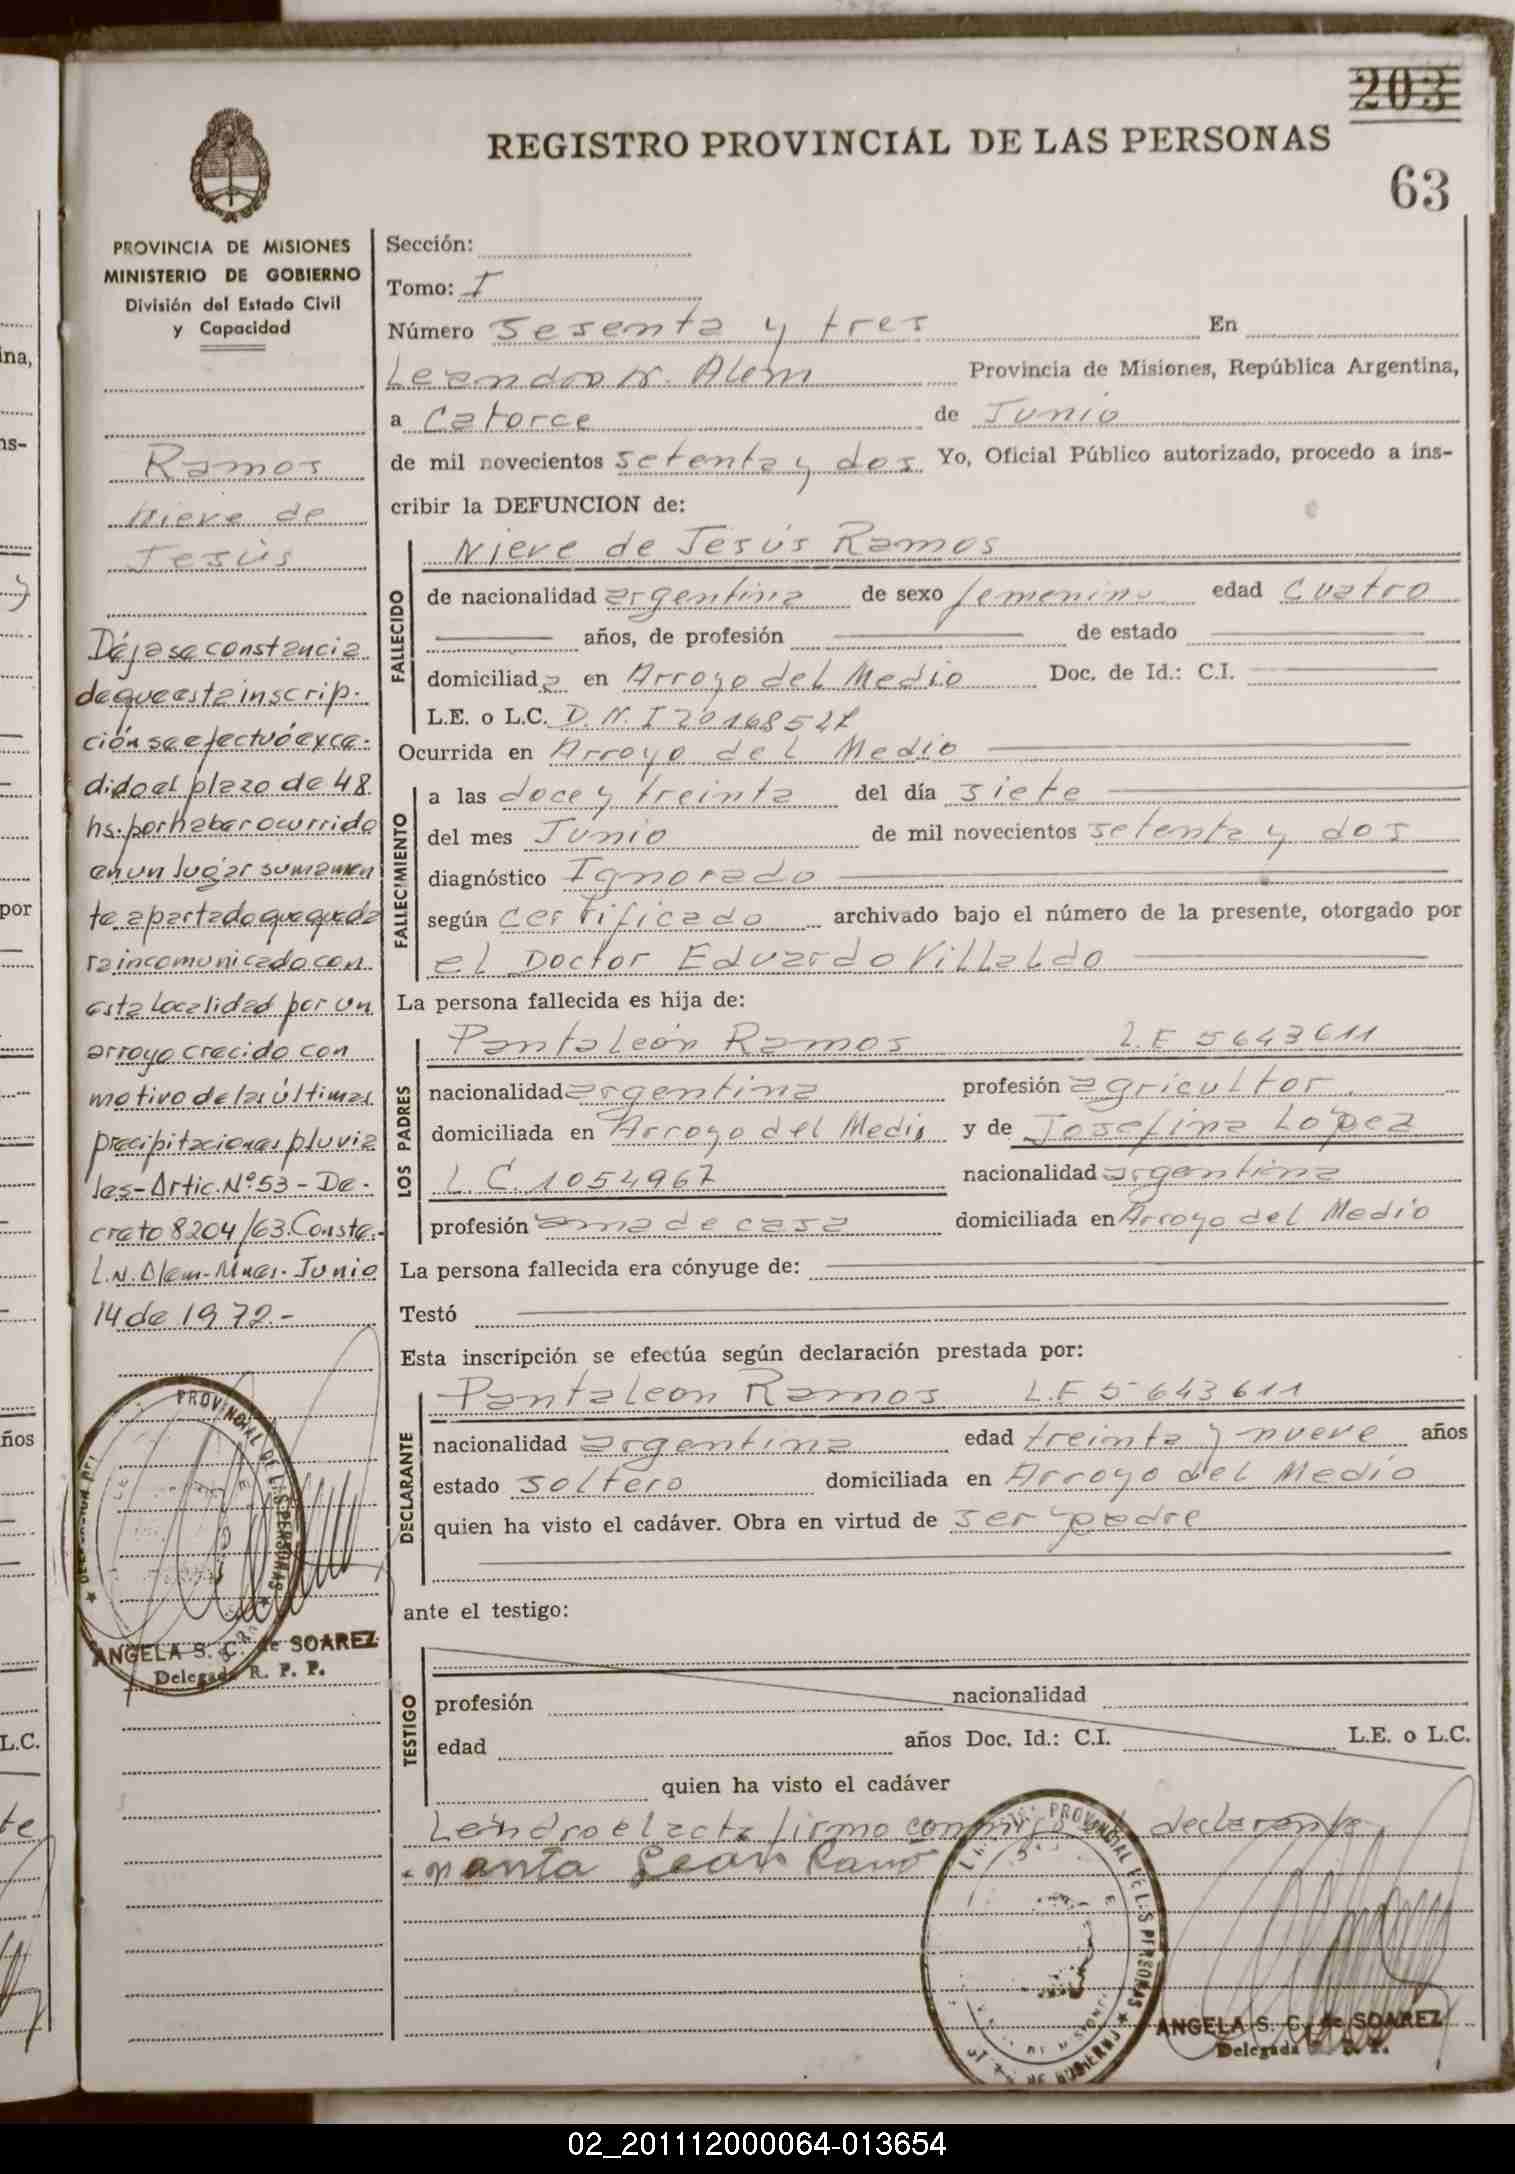 203
REGISTRO PROVINCIAL DE LAS PERSONAS
63
PROVINCIA DE MISIONES
MINISTERIO DE GOBIERNO
División del Estado Civil
y Capacidad
Ramos
Nieve de
Jesús
Déjase constancia
de que esta inscrip-
ción se efectuó exce-
dido el plazo de 48
hs. por haber ocurrido
en un lugar sumamen
te apartado que queda
ra incomunicado con
esta Localidad por un
arroyo crecido con
motivo de las últimas
precipitaciones pluvia
les-Artic. Nº 53-De-
creto 8204/63. Conste.-
L.N. Alem-Mnes- Junio
14 de 1972.-
PROVINCIAL DE LAS PERSONAS
ANGELA S. C. de SOAREZ
Delegada R. P. P.
Sección:
Tomo: I
Número Sesenta y tres En
Leandro N. Alem Provincia de Misiones, República Argentina,
a Catorce de Junio
de mil novecientos setenta y dos Yo, Oficial Público autorizado, procedo a ins-
cribir la DEFUNCION de:
FALLECIDO
Nieve de Jesús Ramos
de nacionalidad argentina de sexo femenino edad cuatro
años, de profesión de estado
domiciliada en Arroyo del Medio Doc. de Id.: C.I.
L.E. o L.C. D.N.I 20168521
Ocurrida en Arroyo del Medio
FALLECIMIENTO
a las doce y treinta del día siete
del mes Junio de mil novecientos setenta y dos
diagnóstico Ignorado
según certificado archivado bajo el número de la presente, otorgado por
el Doctor Eduardo Villaldo
La persona fallecida es hija de:
LOS PADRES
Pantaleón Ramos L.E 5643611
nacionalidad argentina profesión agricultor.
domiciliada en Arroyo del Medio y de Josefina López
L.C. 1054967 nacionalidad argentina
profesión ama de casa domiciliada en Arroyo del Medio
La persona fallecida era cónyuge de:
Testó
Esta inscripción se efectúa según declaración prestada por:
DECLARANTE
Pantaleon Ramos L.E 5643611
nacionalidad argentina edad treinta y nueve años
estado soltero domiciliada en Arroyo del Medio
quien ha visto el cadáver. Obra en virtud de ser padre
ante el testigo:
TESTIGO
profesión nacionalidad
edad años Doc. Id.: C.I. L.E. o L.C.
quien ha visto el cadáver
Leindro el acta firmo conmigo declarante
PROVINCIAL DE LAS PERSONAS
ANGELA S. C. de SOAREZ
Delegada R. P. P.
02_201112000064-013654